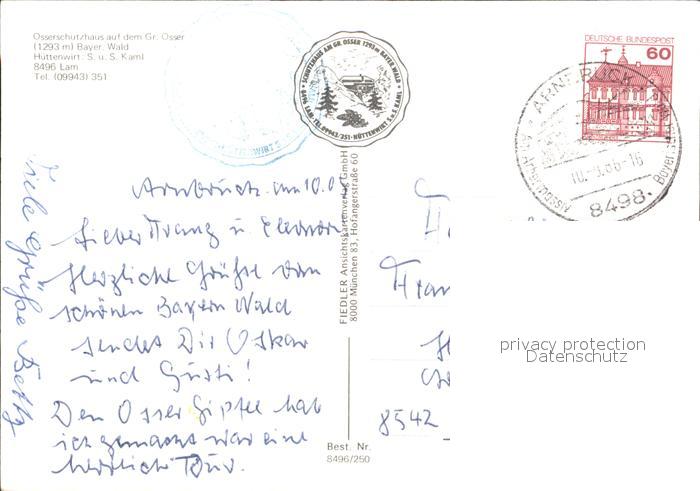 Osserschutzhaus auf dem Gr. Osser
(1293 m) Bayer. Wald
Hüttenwirt: S. u. S. Kaml
8496 Lam
Tel. (09943) 351
SCHUTZHAUS AM GR. OSSER 1293 m BAYER. WALD
8496 LAM · TEL. 09943/351 · HÜTTENWIRT S. u. S. KAML
DEUTSCHE BUNDESPOST
60
ARNBRUCK
10.-9.86-16
8498
Arnbruck am 10.09
Lieber Franz u Eleonore
Herzliche Grüße vom
schönen Bayern Wald
sendet Dir Oskar
und Gusti!
Den Osser Gipfel hab
ich gemacht war eine
herrliche Tour.
Viele Grüße
FIEDLER Ansichtskartenverlag GmbH
8000 München 83, Hofangerstraße 60
Best. Nr.
8496/250
8542
privacy protection
Datenschutz